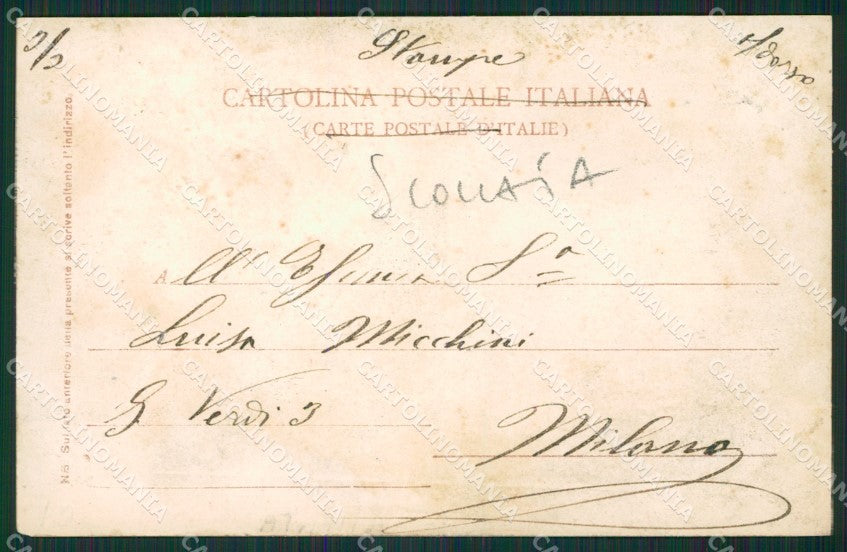 Stampe
CARTOLINA POSTALE ITALIANA
(CARTE POSTALE D'ITALIE)
A All'
Luisa Micchini
G Verdi 3
Milano
NB. Sul lato anteriore della presente si scrive soltanto l'indirizzo.
CARTOLINOMANIA